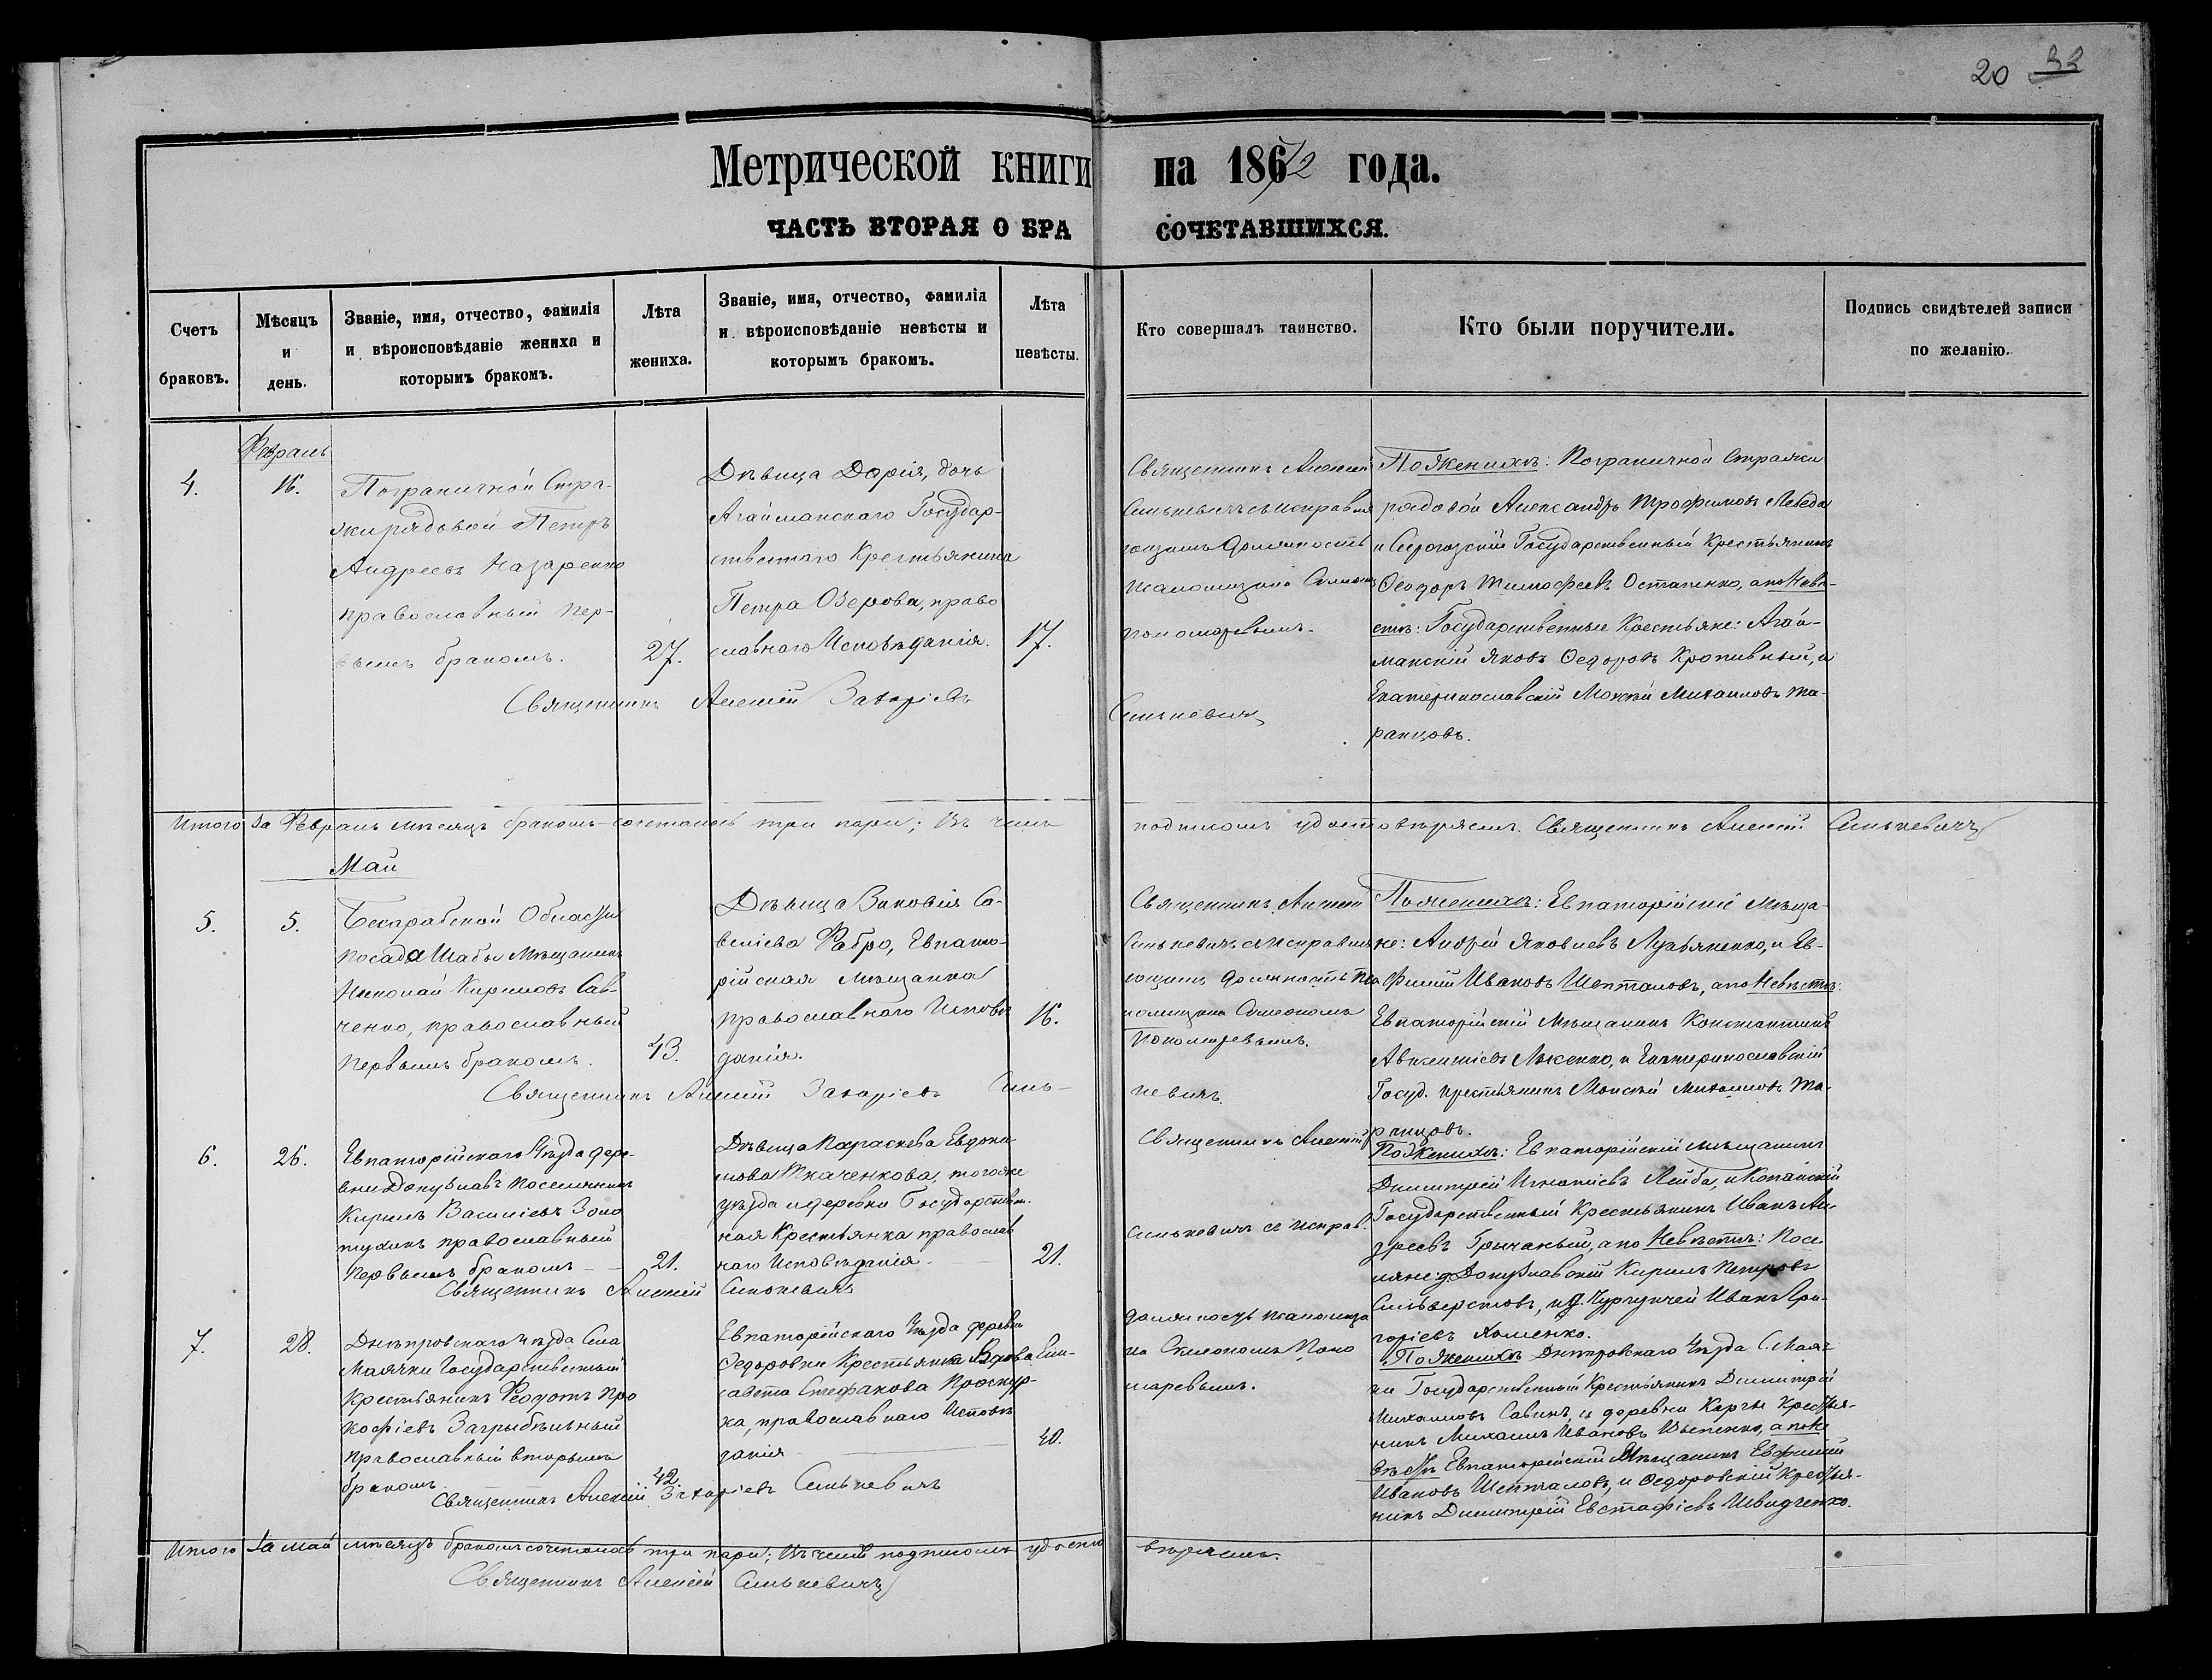 20 33
Метрической книги на 1862 года.
ЧАСТЬ ВТОРАЯ О БРА СОЧЕТАВШИХСЯ.
Счетъ
браковъ.
Мѣсяцъ
и
день.
Званіе, имя, отчество, фамилія
и вѣроисповѣданіе жениха и
которымъ бракомъ.
Лѣта
жениха.
Званіе, имя, отчество, фамилія
и вѣроисповѣданіе невѣсты и
которымъ бракомъ.
Лѣта
невѣсты.
Кто совершалъ таинство.
Кто были поручители.
Подпись свидѣтелей записи
по желанію.
Февраль
4.
16.
Пограничной Стра-
жи рядовой Петръ
Андреевъ Назаренко
православный пер-
вымъ бракомъ.
27.
Дѣвица Дарія, дочь
Агайманскаго Государ-
ственнаго Крестьянина
Петра Озерова, право
славнаго Исповѣданія.
17.
Священникъ Алексій Захаріевъ
Синькевичъ
Священникъ Алексій
Синькевичъ съ исправля
ющимъ должность
Пономаревымъ.
По Женихѣ: Пограничной Стражи
рядовой Александръ Трофимовъ Лебеда
и Серогозскій Государственный Крестьянинъ
Ѳеодоръ Тимофеевъ Остапенко, а по Невѣ-
стѣ: Государственные Крестьяне: Агай-
манскій Яковъ Ѳедоровъ Кропивный, и
Екатеринославскій Мокій Михаиловъ Та-
ранцовъ.
Итого за Февраль мѣсяцъ бракомъ сочетались три пары; въ чемъ подписомъ удостовѣряемъ. Священникъ Алексій Синькевичъ
Май
5.
5.
Бессарабской Области
посада Шабы Мѣщанинъ
Николай Кириловъ Сав-
ченко, православный
первымъ бракомъ.
43.
Дѣвица Зиновія Са-
веліева Фабро, Евпато-
рійская мѣщанка
православнаго Исповѣ
данія.
16.
Священникъ Алексій Захаріевъ Синь-
кевичъ.
Священникъ Алексій
Синькевичъ съ исправля
ющимъ должность
Симеономъ
Пономаревымъ.
По женихѣ: Евпаторійскіе мѣща-
не: Андрей Яковлевъ Лукьяненко, и Ев-
фимій Ивановъ Шепталовъ, а по Невѣстѣ:
Евпаторійскій Мѣщанинъ Константинъ
и Екатеринославскій
Госуд. крестьянинъ Мокій Михаиловъ Та-
ранцовъ.
6.
26.
Евпаторійскаго Уѣзда дере-
вни Донузлавъ поселянинъ
Кирилъ Василіевъ Золо
тухинъ православный
первымъ бракомъ
21.
Дѣвица Параскева Евдоки
мова Ткаченкова, тогоже
уѣзда и деревни Государствен-
ная Крестьянка православ
наго Исповѣданія
21.
Священникъ Алексій Синькевичъ
Священникъ Алексій
Синькевичъ съ исправ.
должность псаломщи
ка Симеономъ Поно
маревымъ.
По Женихѣ: Евпаторійскій мѣщанинъ
Димитрій Игнатіевъ Лейба, и Копанскій
Государственный Крестьянинъ Иванъ Ан-
дреевъ Гричаный, а по Невѣстѣ: Посе
ляне: д. Донузлавской Кирилъ Петровъ
Сильверстовъ, и д. Иванъ Гри-
горіевъ Хоменко.
7.
28.
Днѣпровскаго Уѣзда Села
Маячки Государственный
Крестьянинъ Ѳеодотъ Про
кофіевъ Загрыбѣльный
Православный вторымъ
бракомъ
42.
Евпаторійскаго Уѣзда деревни
Ѳедоровки Крестьянка Вдова Ели-
савета Стефанова Проскур-
ка, православнаго Исповѣ
данія
40.
Священникъ Алексій Захаріевъ Синькевичъ
По Женихѣ Днѣпровскаго Уѣзда С. Маяч
ки Государственный Крестьянинъ Димитрій
Михаиловъ Савинъ, и деревни Каргы Крестья-
нинъ Михаилъ Ивановъ а по Не
вѣстѣ Евпаторійскій Мѣщанинъ Евфимій
Ивановъ Шепталовъ, и Ѳедоровскій Крестья-
нинъ Димитрій Евстафіевъ Швидченко.
Итого за Май мѣсяцъ бракомъ сочетались три пары; въ чемъ подписомъ удосто вѣряемъ.
Священникъ Алексій Синькевичъ